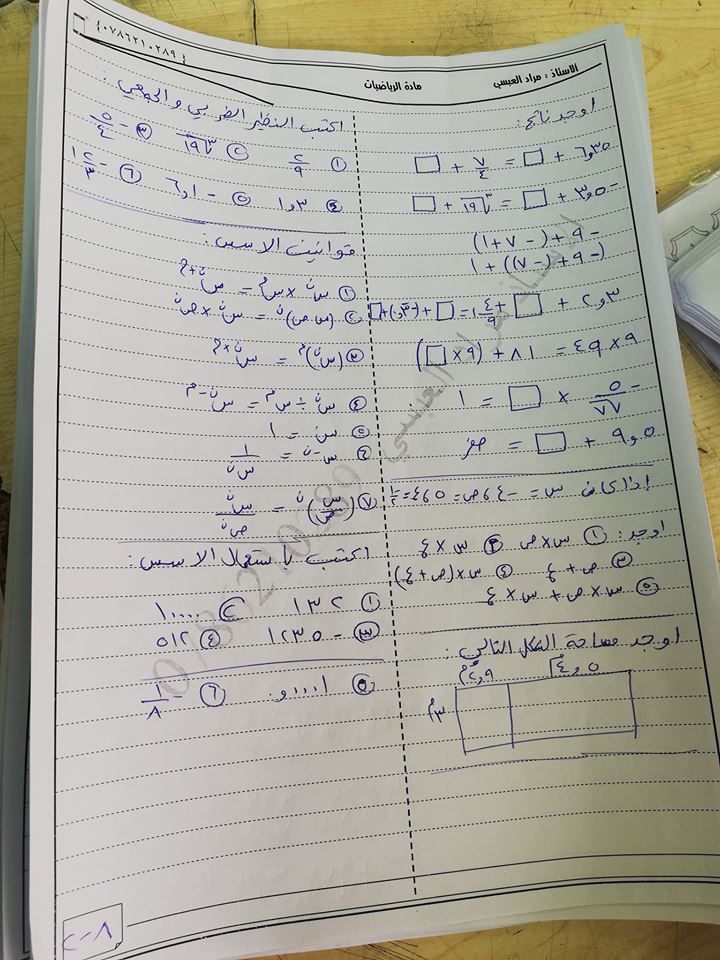 الاستاذ : مراد العبسي
مادة الرياضيات
{٠٧٨٦٢١٠٢٨٩}
اوجد ناتج :
٦,٣٥ + □ = ٧/٤ + □
-٣,٥ + □ = ∛١٩ + □
-٩ + (-٧ + ١)
(-٩ + (-٧)) + ١
٩ × ٤٩ = ٨١ + (٩ × □)
-٥/٧٧ × □ = ١
٩,٥ + □ = صفر
اوجد : ① س × ص ② س × ع
③ ص + ع ④ س × (ص + ع)
⑤ س × ص + س × ع
اوجد مساحة الشكل التالي :
٢,٩م ٤,٥م
٣م
اكتب النظير الضربي والجمعي :
① ٢/٩ ② ∛١٩ ③ -٥/٤
④ ١,٣ ⑤ -٦,١ ⑥ -١٢/٣
قوانين الاسس :
① س^ن × س^م = س^ن+م
② (س ص)^ن = س^ن × ص^ن
③ (س^ن)^م = س^ن×م
④ س^ن ÷ س^م = س^ن-م
⑤ س^٠ = ١
٦ س^-ن = ١/س^ن
⑦ (س/ص)^ن = س^ن/ص^ن
اكتب باستعمال الاسس :
① ١٣٢ ② ١٠٠٠٠
③ -١٢٣٥ ④ ٥١٢
⑤ ٠,٠٠٠١ ⑥ -١/٨
٨-٢
الاستاذ مراد العبسي 0786210289